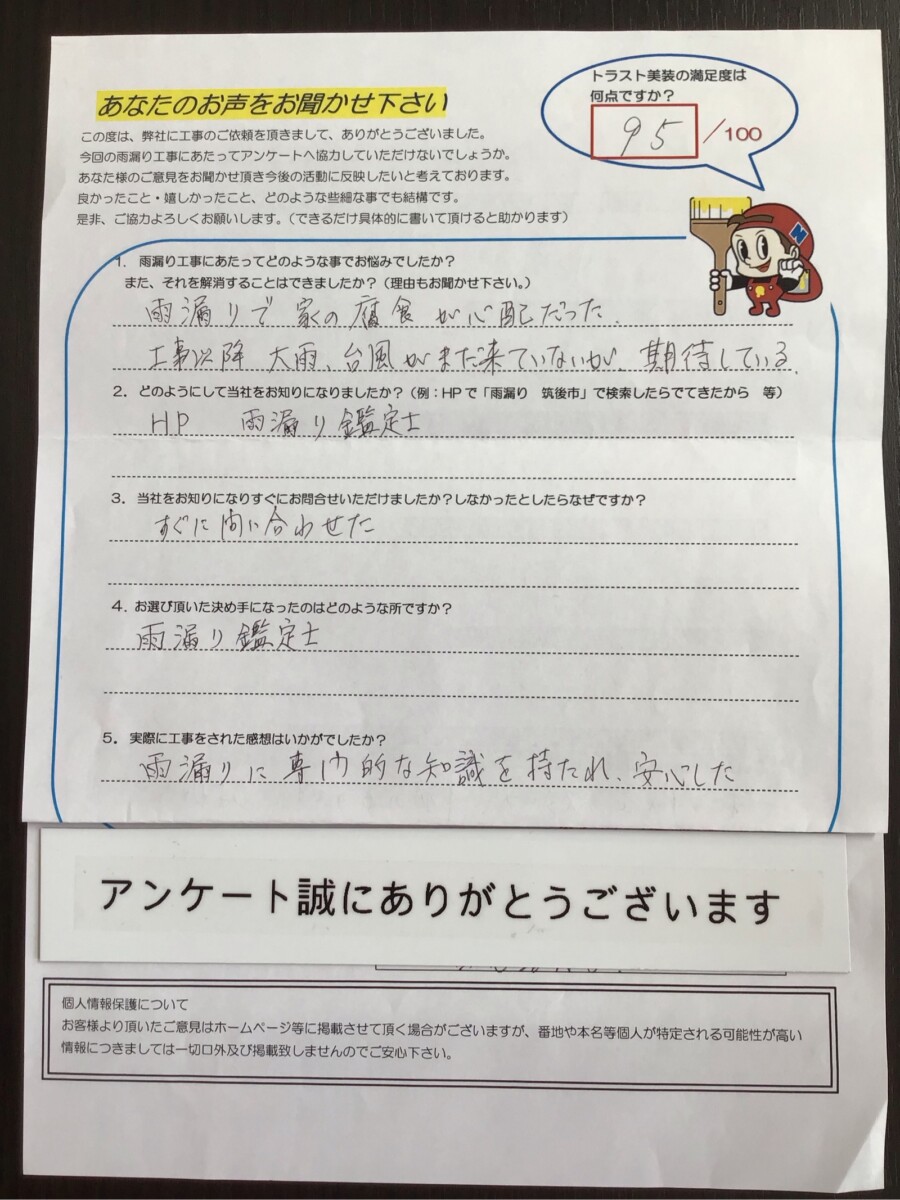 トラスト美装の満足度は
何点ですか?
95/100
あなたのお声をお聞かせ下さい
この度は、弊社に工事のご依頼を頂きまして、ありがとうございました。
今回の雨漏り工事にあたってアンケートへ協力していただけないでしょうか。
あなた様のご意見をお聞かせ頂き今後の活動に反映したいと考えております。
良かったこと・嬉しかったこと、どのような些細な事でも結構です。
是非、ご協力よろしくお願いします。(できるだけ具体的に書いて頂けると助かります)
N
1. 雨漏り工事にあたってどのような事でお悩みでしたか?
また、それを解消することはできましたか?(理由もお聞かせ下さい。)
雨漏りで家の腐食が心配だった.
工事以降 大雨、台風がまだ来ていないが、期待している.
2. どのようにして当社をお知りになりましたか?(例:HPで「雨漏り 筑後市」で検索したらでてきたから 等)
HP 雨漏り鑑定士
3. 当社をお知りになりすぐにお問合せいただけましたか?しなかったとしたらなぜですか?
すぐに問い合わせた
4. お選び頂いた決め手になったのはどのような所ですか?
雨漏り鑑定士
5. 実際に工事をされた感想はいかがでしたか?
雨漏りに専門的な知識を持たれ、安心した
アンケート誠にありがとうございます
個人情報保護について
お客様より頂いたご意見はホームページ等に掲載させて頂く場合がございますが、番地や本名等個人が特定される可能性が高い
情報につきましては一切口外及び掲載致しませんのでご安心下さい。